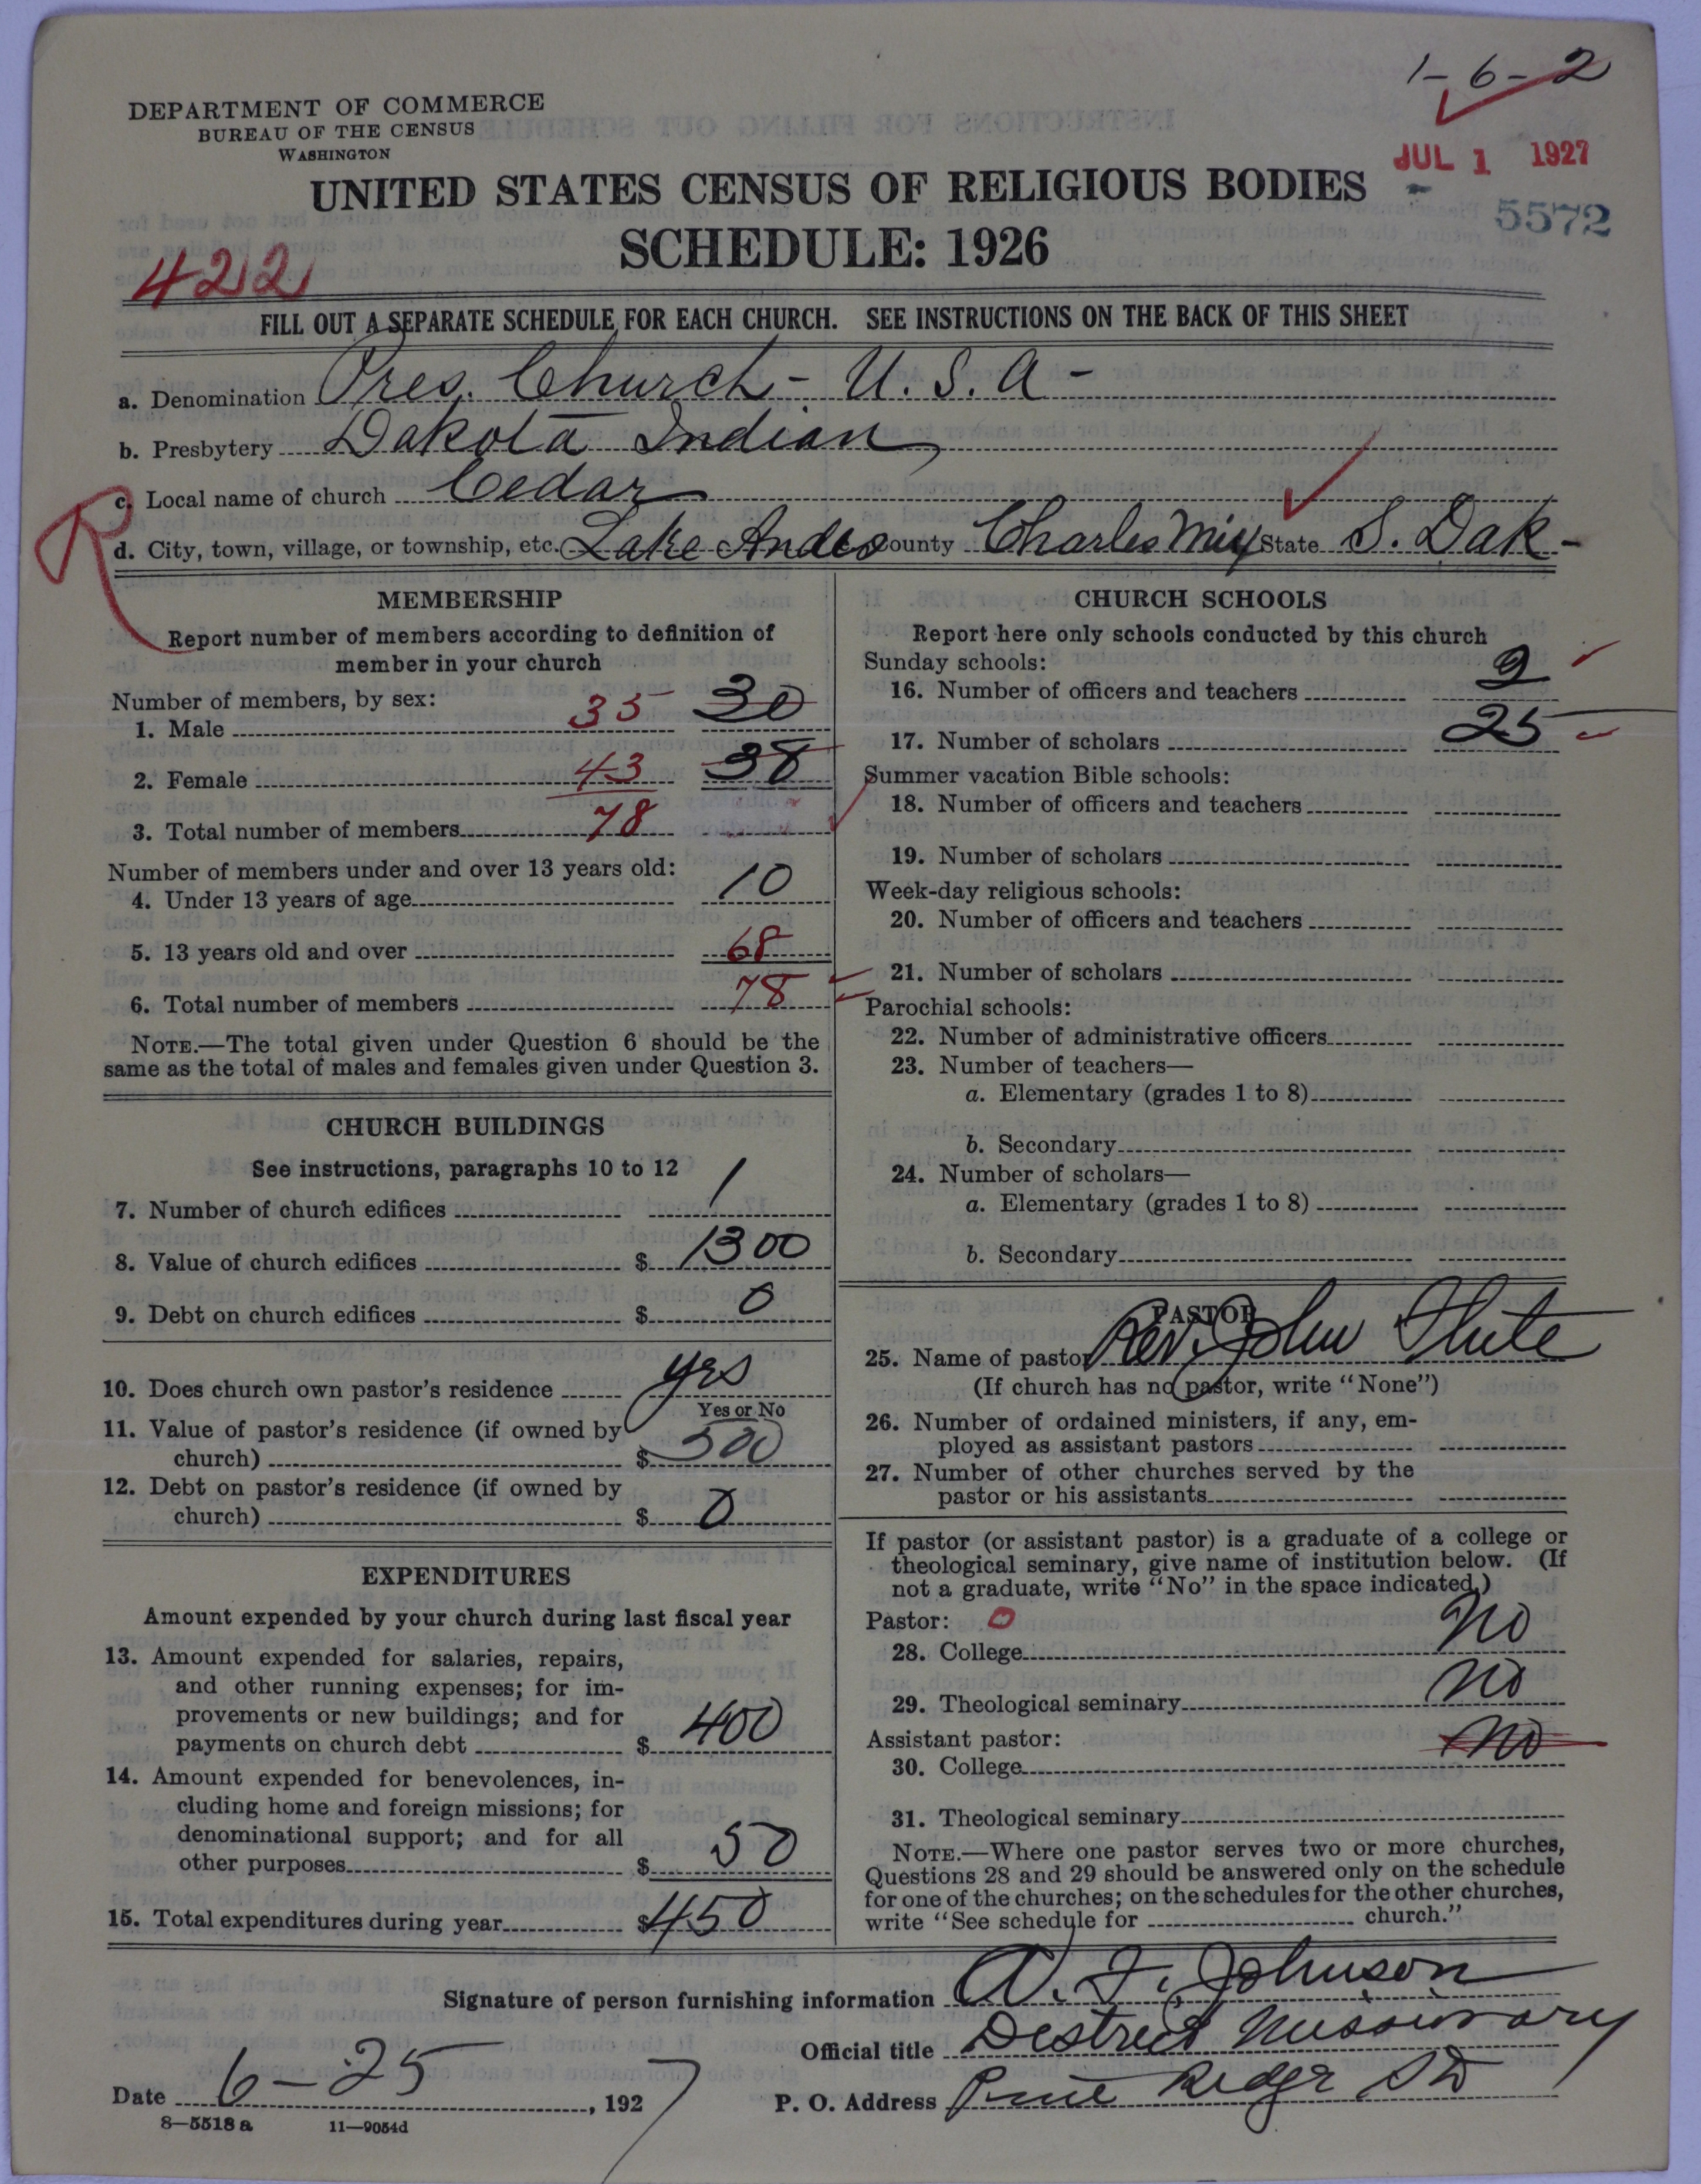 1-6-2
DEPARTMENT OF COMMERCE
BUREAU OF THE CENSUS
WASHINGTON
JUL 1 1927
UNITED STATES CENSUS OF RELIGIOUS BODIES
5572
SCHEDULE: 1926
422
FILL OUT A SEPARATE SCHEDULE FOR EACH CHURCH. SEE INSTRUCTIONS ON THE BACK OF THIS SHEET
a. Denomination Pres. Church - U. S. A -
b. Presbytery Dakota Indian
c. Local name of church Cedar
R
d. City, town, village, or township, etc. Lake Andes County Charles Mix State S. Dak -
MEMBERSHIP
Report number of members according to definition of
member in your church
Number of members, by sex:
1. Male 35 30
2. Female 43 38
3. Total number of members 78
Number of members under and over 13 years old:
4. Under 13 years of age 10
5. 13 years old and over 68
6. Total number of members 78
NOTE.—The total given under Question 6 should be the
same as the total of males and females given under Question 3.
CHURCH BUILDINGS
See instructions, paragraphs 10 to 12
7. Number of church edifices 1
8. Value of church edifices $ 1300
9. Debt on church edifices $ 0
10. Does church own pastor's residence yes
Yes or No
11. Value of pastor's residence (if owned by
church) $ 500
12. Debt on pastor's residence (if owned by
church) $ 0
EXPENDITURES
Amount expended by your church during last fiscal year
13. Amount expended for salaries, repairs,
and other running expenses; for im-
provements or new buildings; and for
payments on church debt $ 400
14. Amount expended for benevolences, in-
cluding home and foreign missions; for
denominational support; and for all
other purposes $ 50
15. Total expenditures during year $ 450
CHURCH SCHOOLS
Report here only schools conducted by this church
Sunday schools:
16. Number of officers and teachers 2
17. Number of scholars 25
Summer vacation Bible schools:
18. Number of officers and teachers
19. Number of scholars
Week-day religious schools:
20. Number of officers and teachers
21. Number of scholars
Parochial schools:
22. Number of administrative officers
23. Number of teachers—
a. Elementary (grades 1 to 8)
b. Secondary
24. Number of scholars—
a. Elementary (grades 1 to 8)
b. Secondary
PASTOR
25. Name of pastor Rev. John
(If church has no pastor, write "None")
26. Number of ordained ministers, if any, em-
ployed as assistant pastors
27. Number of other churches served by the
pastor or his assistants
If pastor (or assistant pastor) is a graduate of a college or
theological seminary, give name of institution below. (If
not a graduate, write "No" in the space indicated.)
Pastor: 0
28. College No
29. Theological seminary No
Assistant pastor:
30. College No
31. Theological seminary
NOTE.—Where one pastor serves two or more churches,
Questions 28 and 29 should be answered only on the schedule
for one of the churches; on the schedules for the other churches,
write "See schedule for church."
Signature of person furnishing information A. F. Johnson
Official title District Missionary
Date 6-25, 1927
P. O. Address Pine Ridge SD
8—5518a 11—9054d